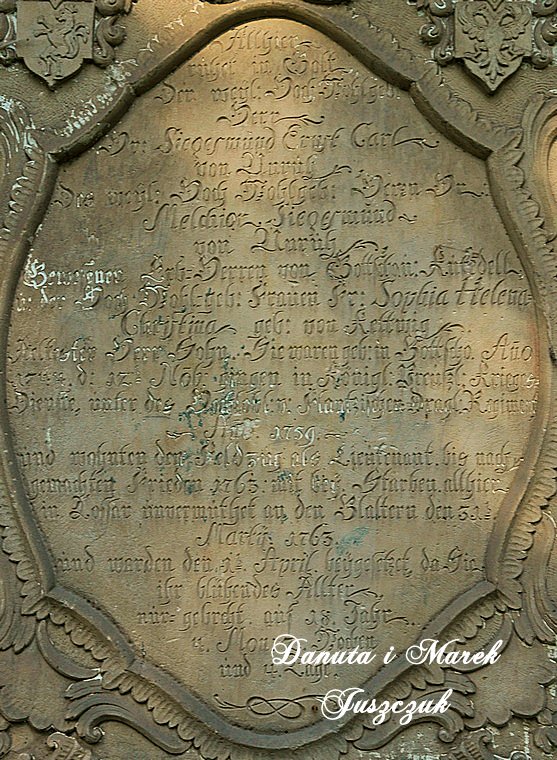 Allhier
ruhet in Gott
Der weyl: Hoch Wohlgeb:
Herr
Hr: Siegesmund Ernst Carl
von Unruh
Des weyl: Hoch Wohlgeb: Herrn Hr:
Melchior Siegesmund
von Unruh
Gewesenen Erb-Herren von
u: der Hoch Wohl-geb: Frauen Fr: Sophia Helena
Christina geb: von Kottwig
Herr Sohn. Sie waren geb: in Gottscho. Año
d: 12t Nob. gingen in Königl. Preußl. Krieges
Dienste, unter des Dragl. Regiment
Año 1759
und wohnten dem Feldzug als Lieutenant bis nach
gemachten Frieden 1763 mit bey. Starben allhier
in unvermuthet an den Blattern den 31t
Martij 1763
und warden den 1t April beygesetzet, da Sie
ihr blühendes Allter
nur gebracht auf 18 Jahr
4 Mon: Wochen
und 4 Tage
Danuta i Marek
Juszczuk